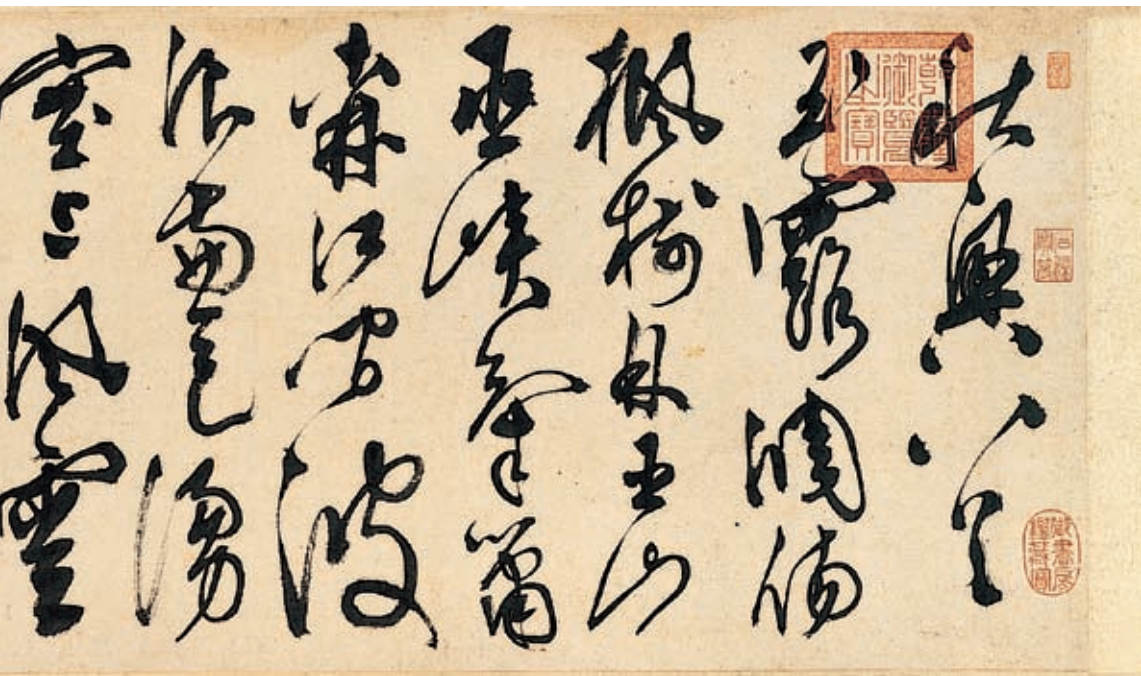 秋興八首
玉露凋傷
楓樹林巫山
巫峽氣蕭
森江間波
浪兼天湧
塞上風雲
乾隆御覽之寶
御書房鑑藏寶